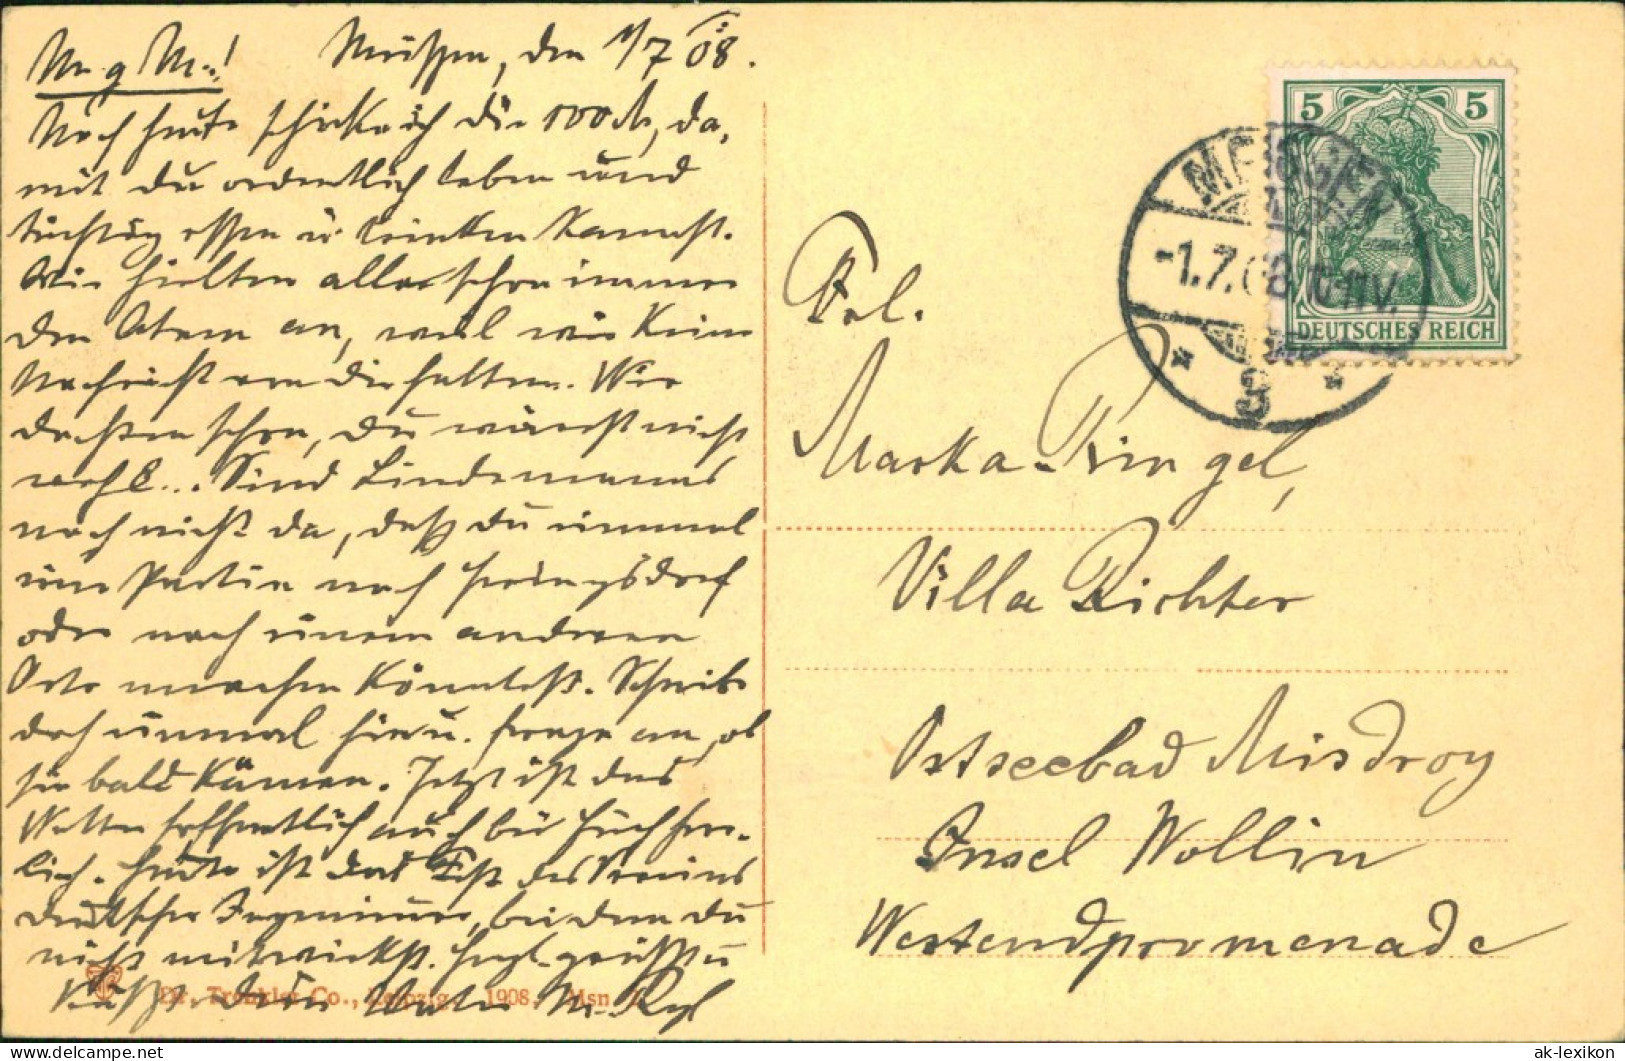 M. g. M.! Meißen, den 1/7 08.
Noch heute schicke ich die 100 M, da,
mit du ordentlich leben und
tüchtig essen u. trinken kannst.
Wir hielten alle schon immer
den Atem an, weil wir keine
Nachricht von dir hatten. Wir
dachten schon, du wärest nicht
wohl... Sind Lindemanns
noch nicht da, daß du einmal
eine Partie nach Heringsdorf
oder nach einem anderen
Orte machen könntest. Schreib
doch einmal hin u. frage an, ob
sie bald kämen. Jetzt ist das
Wetter hoffentlich auch bei Euch herr-
lich. Heute ist das Fest des Vereins
deutscher Ingenieure, bei dem du
nicht mitwirkst. Herzl. grüßt u
küßt dein Vater M. Rgl
Dr. Trenkler Co., Leipzig. 1908. Msn
5 5
DEUTSCHES REICH
MEISSEN
-1.7.08. 10-11V.
* 3 *
Frl.
Marka Ringel,
Villa Richter
Ostseebad Misdroy
Insel Wollin
Westendpromenade
ak-lexikon
https://www.ak-ansichtskarten.de